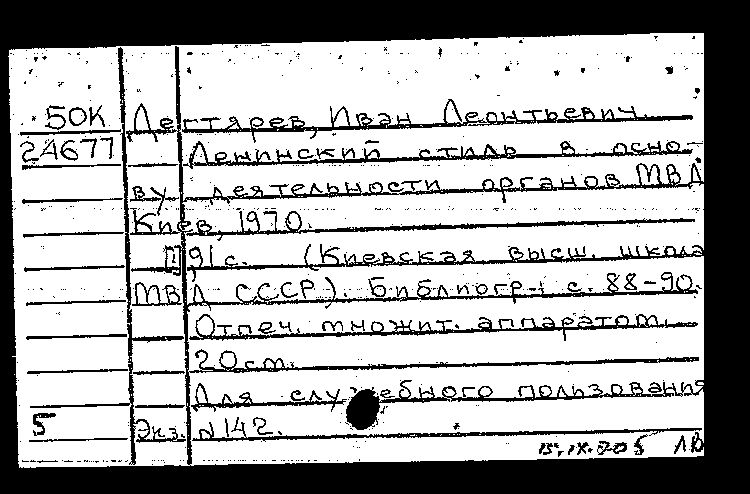 50К Дегтярев, Иван Леонтьевич.
24677 Ленинский стиль в осно-
ву деятельности органов МВД
Киев, 1970.
91 с. (Киевская высш. школа
МВД СССР). Библиогр.: с. 88-90.
Отпеч. множит. аппаратом.
20 см.
Для служебного пользования
5 Экз. №142.
ЛВ